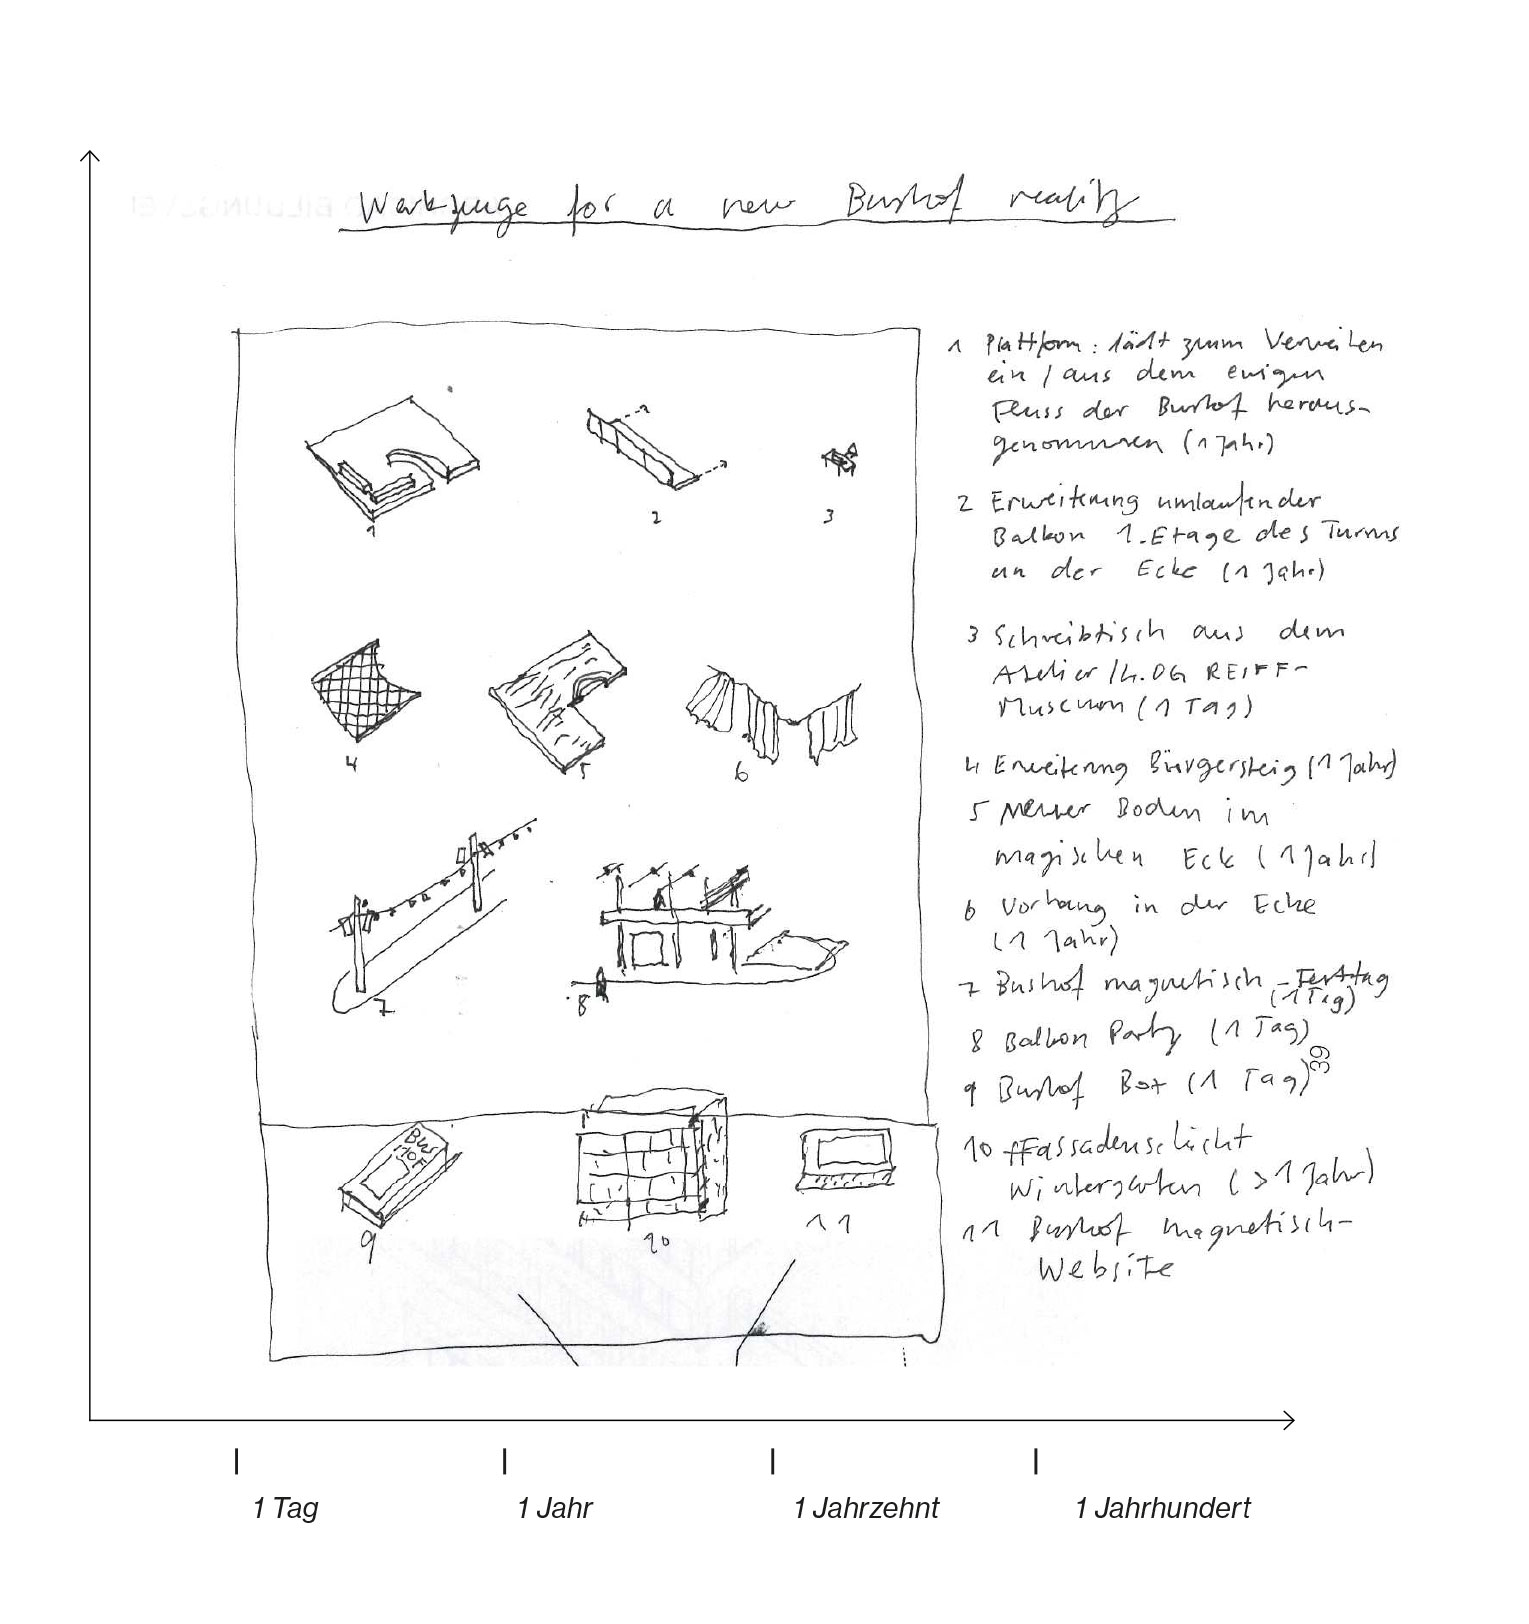 Werkzeuge for a new Bushof reality
1 Plattform: lädt zum Verweilen
ein / aus dem ewigen
Fluss der Bushof heraus-
genommen (1 Jahr)
2 Erweiterung umlaufender
Balkon 1. Etage des Turms
an der Ecke (1 Jahr)
3 Schreibtisch aus dem
Atelier /4.OG REIFF-
Museum (1 Tag)
4 Erweiterung Bürgersteig (1 Jahr)
5 Neuer Boden im
magischen Eck (1 Jahr)
6 Vorhang in der Ecke
(1 Jahr)
7 Bushof magnetisch - Festtag
(1 Tag)
8 Balkon Party (1 Tag)
9 Bushof Box (1 Tag)
39
10 Fassadenschicht
Wintergarten (>1 Jahr)
11 Bushof magnetisch-
Website
1
2
3
4
5
6
7
8
BUS
HOF
9
10
11
1 Tag
1 Jahr
1 Jahrzehnt
1 Jahrhundert